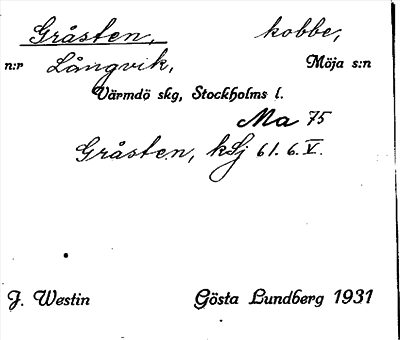 Gråsten, kobbe,
n:r Långvik, Möja s:n
Värmdö skg, Stockholms l.
Ma 75
Gråsten, kSj 61. 6. V.
J. Westin Gösta Lundberg 1931